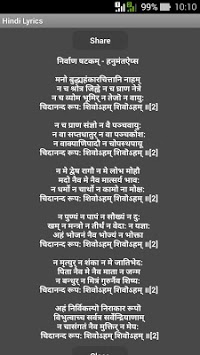 10:10
Hindi Lyrics
Share
निर्वाण षटकम् - हनुमंतऐप्स
मनो बुद्ध्यहंकारचित्तानि नाहम्
न च श्रोत्र जिह्वे न च घ्राण नेत्रे
न च व्योम भूमिर् न तेजो न वायुः
चिदानन्द रूपः शिवोऽहम् शिवोऽहम् ॥[2]
न च प्राण संज्ञो न वै पञ्चवायुः
न वा सप्तधातुर् न वा पञ्चकोशः
न वाक्पाणिपादौ न चोपस्थपायू
चिदानन्द रूपः शिवोऽहम् शिवोऽहम् ॥[2]
न मे द्वेष रागौ न मे लोभ मोहौ
मदो नैव मे नैव मात्सर्य भावः
न धर्मो न चार्थो न कामो न मोक्षः
चिदानन्द रूपः शिवोऽहम् शिवोऽहम् ॥[2]
न पुण्यं न पापं न सौख्यं न दुः
खम् न मन्त्रो न तीर्थं न वेदः न यज्ञाः
अहं भोजनं नैव भोज्यं न भोक्ता
चिदानन्द रूपः शिवोऽहम् शिवोऽहम् ॥[2]
न मृत्युर् न शंका न मे जातिभेदः
पिता नैव मे नैव माता न जन्म
न बन्धुर् न मित्रं गुरुर्नैव शिष्यः
चिदानन्द रूपः शिवोऽहम् शिवोऽहम् ॥[2]
अहं निर्विकल्पो निराकार रूपो
विभुत्वाच्च सर्वत्र सर्वेन्द्रियाणाम्
न चासंगतं नैव मुक्तिर् न मेयः
चिदानन्द रूपः शिवोऽहम् शिवोऽहम् ॥[2]